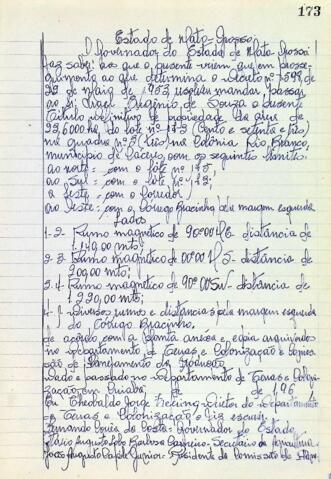 173
Estado de Mato-Grosso
O Governador do Estado de Mato-Grosso:
Faz saber aos que o presente virem que em prosse-
guimento ao que determina o Decreto nº
de Maio de 1953 resolveu mandar passar
ao Sr. Israel Eugênio de Souza o presente
Título definitivo de propriedade da área de
22,6000 ha, do lote nº 173 (cento e setenta e três)
na Quadra nº na Colônia Rio Branco,
município de Cáceres, com os seguintes limites:
ao norte: com o lote nº 175;
ao Sul: com o lote nº 172;
a Leste: com o Corredor;
ao Oeste: com o Córrego Bracinho pela margem esquerda
Lados
1-2- Rumo magnético de 90º00' distância de
1.140,00 mts;
2-3- Rumo magnético de 00º00' S- distância de
200,00 mts;
3-4- Rumo magnético de 90º00' SW- distância de
1.220,00 mts;
4-1- Diversos rumos e distâncias pela margem esquerda
do Córrego Bracinho,
de acordo com a planta anexa e cópia arquivadas
no Departamento de Terras e Colonização e Comis-
são de Planejamento da Produção
Dado e passado no Departamento de Terras e Coloni-
zação em Cuiabá, de de 196
Eu Thebaldo Jorge Diretor do Departamento
de Terras e Colonização o fiz escrever
Fernando Corrêa da Costa - Governador do Estado
Augusto Barbosa Carneiro - Secretário da Agricultura
João Augusto Júnior - Presidente da Comissão de